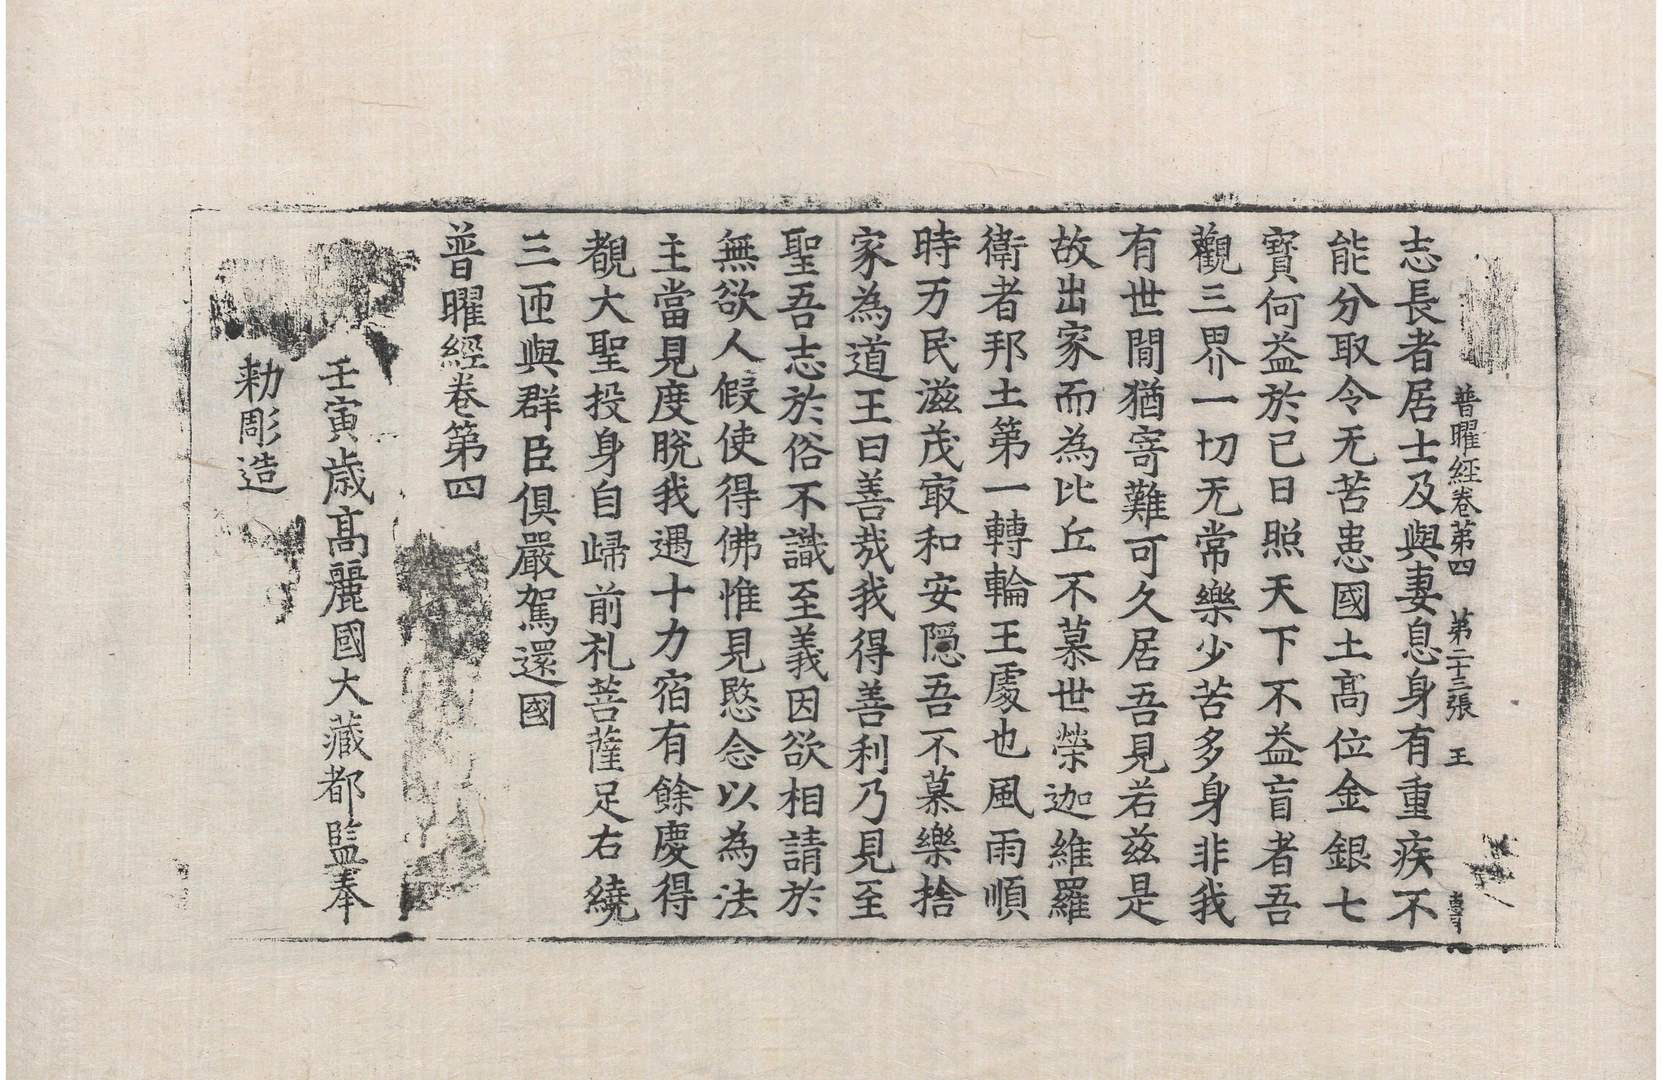 普曜經卷第四 第二十三張 王
志長者居士及與妻息身有重疾不
能分取令无苦患國土高位金銀七
寳何益於己日照天下不益盲者吾
觀三界一切无常樂少苦多身非我
有世間猶寄難可久居吾見若兹是
故出家而為比丘不慕世榮迦維羅
衛者邦土第一轉輪王處也風雨順
時万民滋茂㝡和安隱吾不慕樂捨
家為道王曰善哉我得善利乃見至
聖吾志於俗不識至義因欲相請於
無欲人假使得佛惟見愍念以為法
主當見度脫我遇十力宿有餘慶得
覩大聖投身自歸前礼菩薩足右繞
三匝與群臣俱嚴駕還國
普曜經卷第四
壬寅歳高麗國大藏都監奉
勅彫造